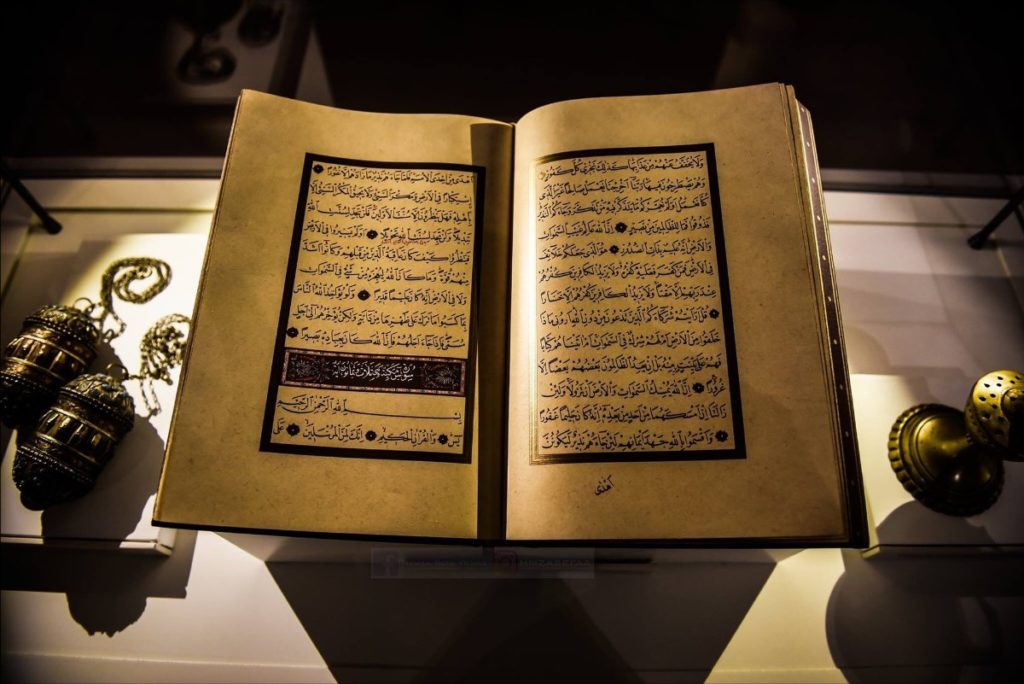 وَلَا يُخَفَّفُ عَنْهُمْ مِنْ عَذَابِهَا كَذٰلِكَ نَجْزِى كُلَّ كَفُورٍ
وَهُمْ يَصْطَرِخُونَ فِيهَا رَبَّنَا اَخْرِجْنَا نَعْمَلْ صَالِحًا غَيْرَ الَّذِى
كُنَّا نَعْمَلُ اَوَلَمْ نُعَمِّرْكُمْ مَا يَتَذَكَّرُ فِيهِ مَنْ تَذَكَّرَ وَجَاءَكُمُ النَّذِيرُ
فَذُوقُوا فَمَا لِلظَّالِمِينَ مِنْ نَصِيرٍ اِنَّ اللهَ عَالِمُ غَيْبِ السَّمٰوَاتِ
وَالْاَرْضِ اِنَّهُ عَلِيمٌ بِذَاتِ الصُّدُورِ هُوَ الَّذِى جَعَلَكُمْ خَلَائِفَ
فِى الْاَرْضِ فَمَنْ كَفَرَ فَعَلَيْهِ كُفْرُهُ وَلَا يَزِيدُ الْكَافِرِينَ كُفْرُهُمْ
عِنْدَ رَبِّهِمْ اِلَّا مَقْتًا وَلَا يَزِيدُ الْكَافِرِينَ كُفْرُهُمْ اِلَّا خَسَارًا
قُلْ اَرَاَيْتُمْ شُرَكَاءَكُمُ الَّذِينَ تَدْعُونَ مِنْ دُونِ اللهِ اَرُونِى مَاذَا
خَلَقُوا مِنَ الْاَرْضِ اَمْ لَهُمْ شِرْكٌ فِى السَّمٰوَاتِ اَمْ اٰتَيْنَاهُمْ كِتَابًا
فَهُمْ عَلٰى بَيِّنَتٍ مِنْهُ بَلْ اِنْ يَعِدُ الظَّالِمُونَ بَعْضُهُمْ بَعْضًا اِلَّا
غُرُورًا اِنَّ اللهَ يُمْسِكُ السَّمٰوَاتِ وَالْاَرْضَ اَنْ تَزُولَا وَلَئِنْ
زَالَتَا اِنْ اَمْسَكَهُمَا مِنْ اَحَدٍ مِنْ بَعْدِهِ اِنَّهُ كَانَ حَلِيمًا غَفُورًا
وَاَقْسَمُوا بِاللهِ جَهْدَ اَيْمَانِهِمْ لَئِنْ جَاءَهُمْ نَذِيرٌ لَيَكُونُنَّ
اَهْدٰى
اَهْدٰى مِنْ اِحْدَى الْاُمَمِ فَلَمَّا جَاءَهُمْ نَذِيرٌ مَا زَادَهُمْ اِلَّا نُفُورًا
اِسْتِكْبَارًا فِى الْاَرْضِ وَمَكْرَ السَّيِّئِ وَلَا يَحِيقُ الْمَكْرُ السَّيِّئُ اِلَّا
بِاَهْلِهِ فَهَلْ يَنْظُرُونَ اِلَّا سُنَّتَ الْاَوَّلِينَ فَلَنْ تَجِدَ لِسُنَّتِ اللهِ
تَبْدِيلًا وَلَنْ تَجِدَ لِسُنَّتِ اللهِ تَحْوِيلًا اَوَلَمْ يَسِيرُوا فِى الْاَرْضِ
فَيَنْظُرُوا كَيْفَ كَانَ عَاقِبَةُ الَّذِينَ مِنْ قَبْلِهِمْ وَكَانُوا اَشَدَّ
مِنْهُمْ قُوَّةً وَمَا كَانَ اللهُ لِيُعْجِزَهُ مِنْ شَىْءٍ فِى السَّمٰوَاتِ
وَلَا فِى الْاَرْضِ اِنَّهُ كَانَ عَلِيمًا قَدِيرًا وَلَوْ يُؤَاخِذُ اللهُ النَّاسَ
بِمَا كَسَبُوا مَا تَرَكَ عَلٰى ظَهْرِهَا مِنْ دَابَّةٍ وَلٰكِنْ يُؤَخِّرُهُمْ اِلٰى اَجَلٍ
مُسَمًّى فَاِذَا جَاءَ اَجَلُهُمْ فَاِنَّ اللهَ كَانَ بِعِبَادِهِ بَصِيرًا
سورة يس مكية
بِسْمِ اللهِ الرَّحْمٰنِ الرَّحِيمِ
يٰسٓ وَالْقُرْاٰنِ الْحَكِيمِ اِنَّكَ لَمِنَ الْمُرْسَلِينَ عَلٰى